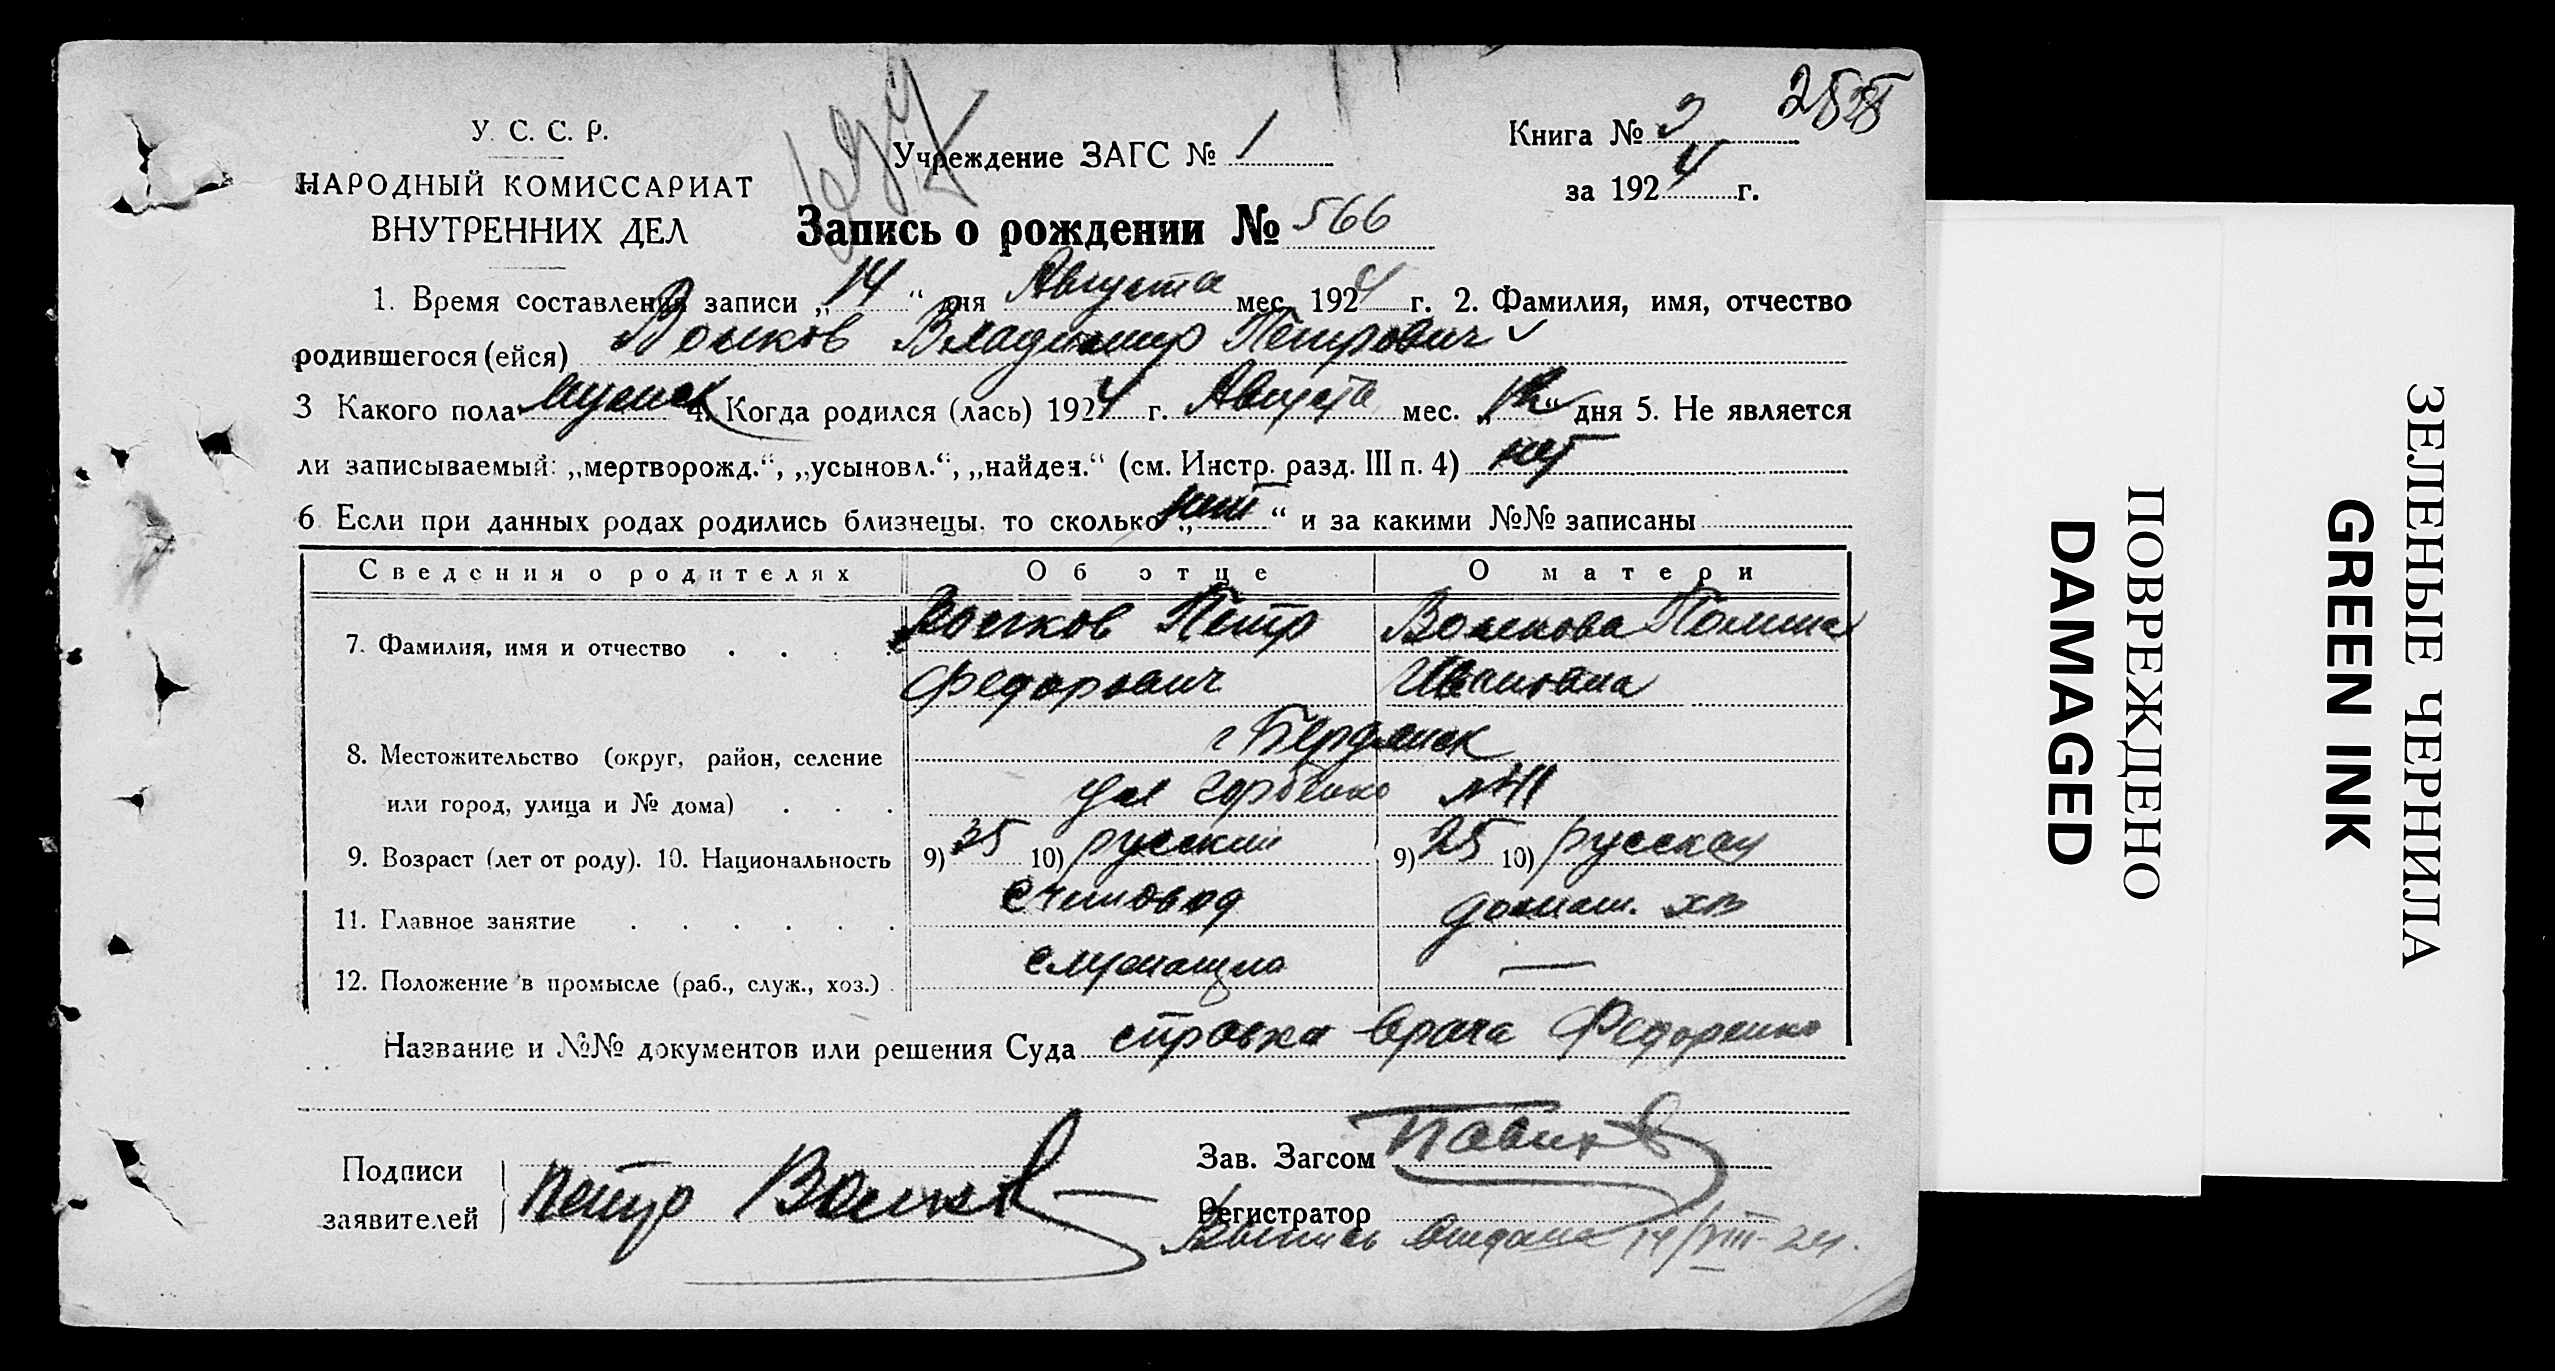 У. С. С. Р.
НАРОДНЫЙ КОМИССАРИАТ
ВНУТРЕННИХ ДЕЛ
Учреждение ЗАГС № 1
Книга № 3
за 1924 г.
Запись о рождении № 566
1. Время составления записи „14“ дня Августа мес. 1924 г. 2. Фамилия, имя, отчество
родившегося (ейся) Волков Владимир Петрович
3 Какого пола мужск 4. Когда родился (лась) 1924 г. Августа мес. „ “ дня 5. Не является
ли записываемый: „мертворожд.“, „усыновл.“, „найден.“ (см. Инстр. разд. III п. 4) нет
6 Если при данных родах родились близнецы, то сколько „нет“ и за какими №№ записаны
Сведения о родителях Об отце О матери
7. Фамилия, имя и отчество Волков Петр Волкова Полина
Федорович Ивановна
8. Местожительство (округ, район, селение г Бердянск
или город, улица и № дома) ул Горбенко №41
9. Возраст (лет от роду). 10. Национальность 9) 35 10) русский 9) 25 10) русская
11. Главное занятие счетовод домаш. хоз
12. Положение в промысле (раб., служ., хоз.) служащий —
Название и №№ документов или решения Суда справка врача Федоренко
Подписи
заявителей
Петр Волков
Зав. Загсом
Регистратор
Выпись выдана 14/VIII-24.
ПОВРЕЖДЕНО
DAMAGED
ЗЕЛЕНЫЕ ЧЕРНИЛА
GREEN INK